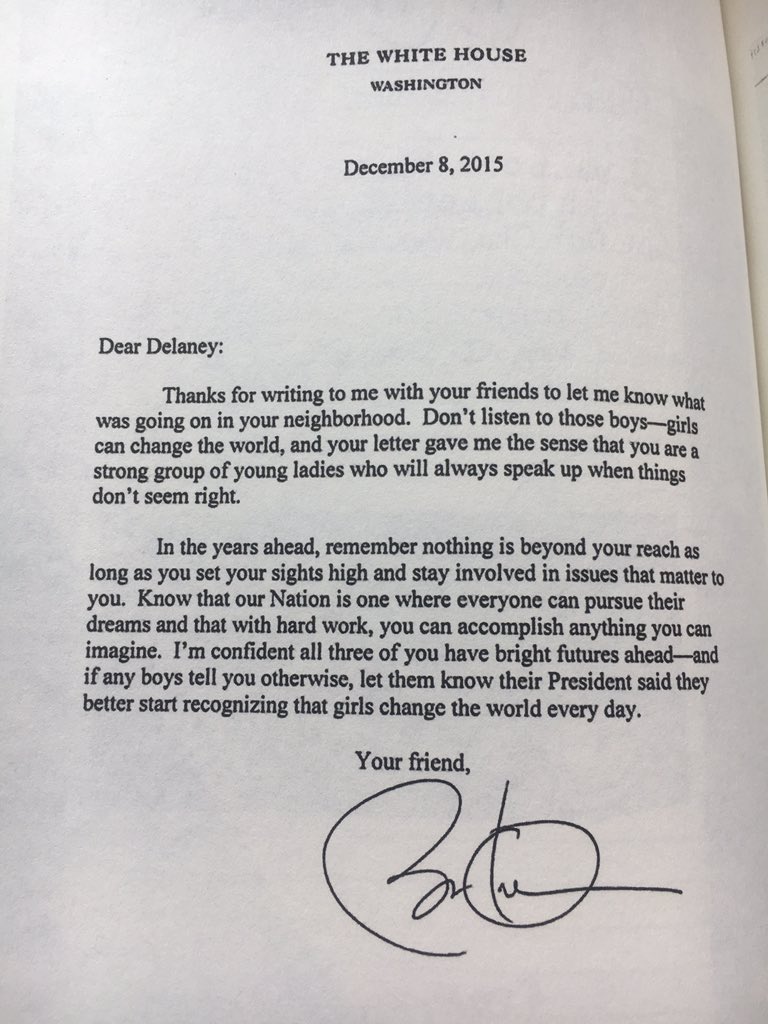 THE WHITE HOUSE
WASHINGTON
December 8, 2015
Dear Delaney:
Thanks for writing to me with your friends to let me know what
was going on in your neighborhood. Don't listen to those boys—girls
can change the world, and your letter gave me the sense that you are a
strong group of young ladies who will always speak up when things
don't seem right.
In the years ahead, remember nothing is beyond your reach as
long as you set your sights high and stay involved in issues that matter to
you. Know that our Nation is one where everyone can pursue their
dreams and that with hard work, you can accomplish anything you can
imagine. I'm confident all three of you have bright futures ahead—and
if any boys tell you otherwise, let them know their President said they
better start recognizing that girls change the world every day.
Your friend,